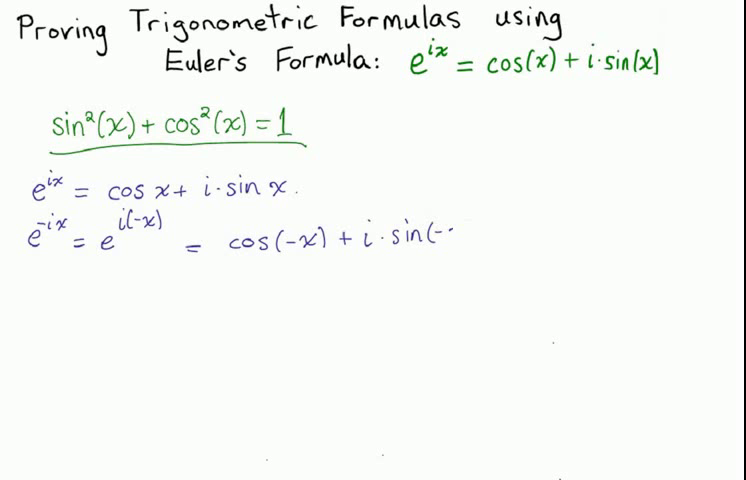 Proving Trigonometric Formulas using
Euler's Formula: e^{ix} = cos(x) + i·sin(x)
sin²(x) + cos²(x) = 1
e^{ix} = cos x + i·sin x.
e^{-ix} = e^{i(-x)} = cos(-x) + i·sin(-